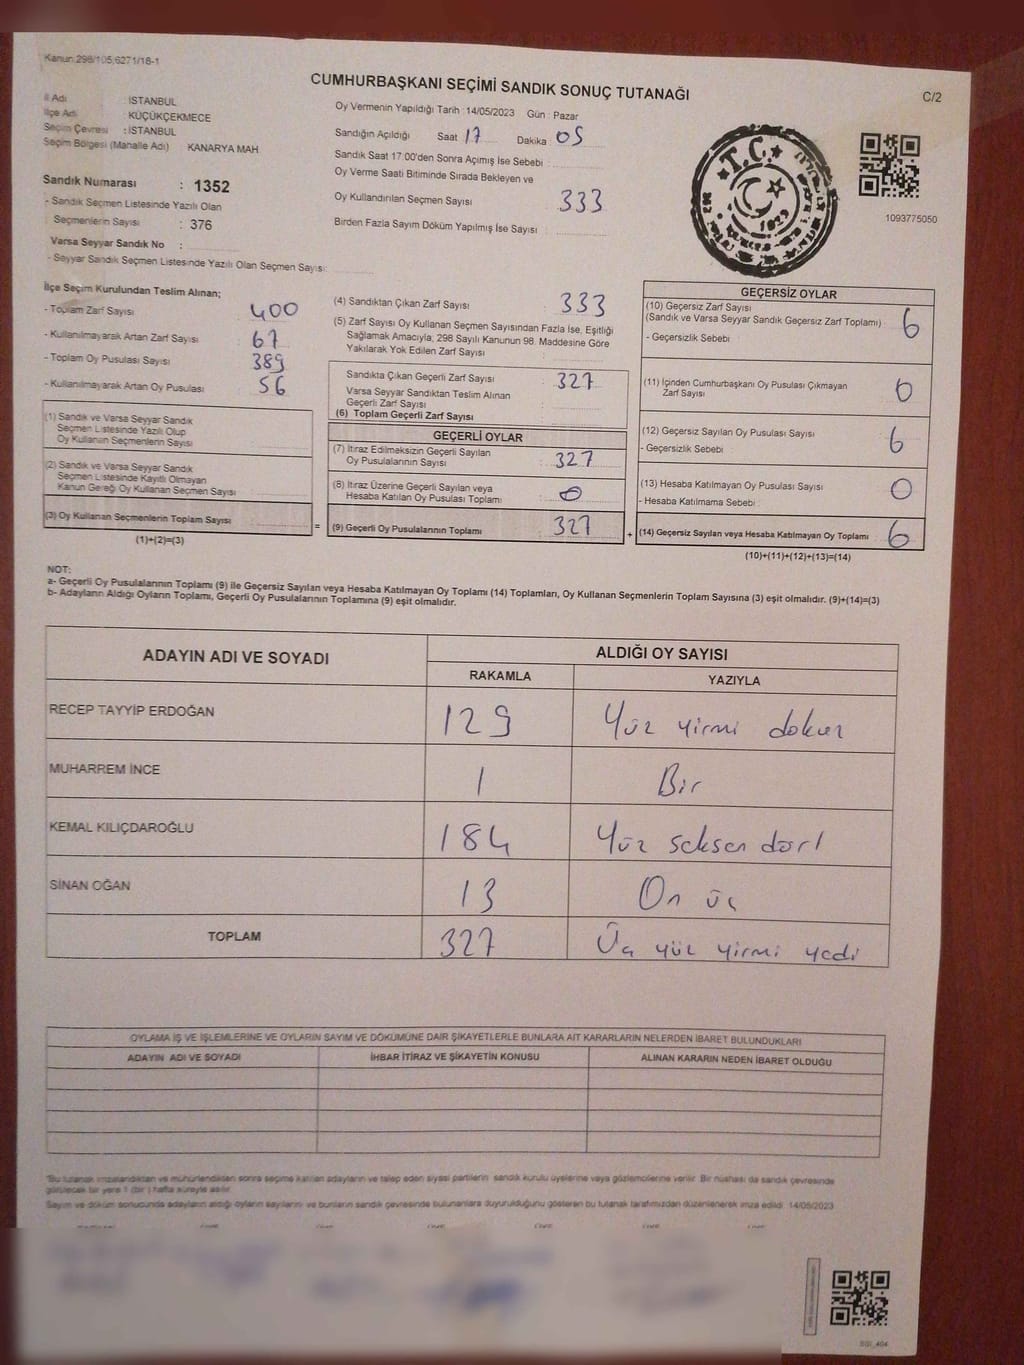 Kanun:298/105,6271/18-1
CUMHURBAŞKANI SEÇİMİ SANDIK SONUÇ TUTANAĞI
C/2
İl Adı : İSTANBUL
İlçe Adı : KÜÇÜKÇEKMECE
Seçim Çevresi : İSTANBUL
Seçim Bölgesi (Mahalle Adı) KANARYA MAH.
Sandık Numarası : 1352
- Sandık Seçmen Listesinde Yazılı Olan
Seçmenlerin Sayısı : 376
Varsa Seyyar Sandık No :
- Seyyar Sandık Seçmen Listesinde Yazılı Olan Seçmen Sayısı:
Oy Vermenin Yapıldığı Tarih : 14/05/2023 Gün : Pazar
Sandığın Açıldığı Saat 17 Dakika 05
Sandık Saat 17:00'den Sonra Açımış İse Sebebi :
Oy Verme Saati Bitiminde Sırada Bekleyen ve
Oy Kullandırılan Seçmen Sayısı : 333
Birden Fazla Sayım Döküm Yapılmış İse Sayısı :
T.C.
1923
1093775050
İlçe Seçim Kurulundan Teslim Alınan;
- Toplam Zarf Sayısı : 400
- Kullanılmayarak Artan Zarf Sayısı : 67
- Toplam Oy Pusulası Sayısı : 389
- Kullanılmayarak Artan Oy Pusulası : 56
(1) Sandık ve Varsa Seyyar Sandık
Seçmen Listesinde Yazılı Olup
Oy Kullanan Seçmenlerin Sayısı :
(2) Sandık ve Varsa Seyyar Sandık
Seçmen Listesinde Kayıtlı Olmayan
Kanun Gereği Oy Kullanan Seçmen Sayısı :
(3) Oy Kullanan Seçmenlerin Toplam Sayısı :
(1)+(2)=(3)
=
(4) Sandıktan Çıkan Zarf Sayısı : 333
(5) Zarf Sayısı Oy Kullanan Seçmen Sayısından Fazla İse, Eşitliği
Sağlamak Amacıyla; 298 Sayılı Kanunun 98. Maddesine Göre
Yakılarak Yok Edilen Zarf Sayısı :
Sandıkta Çıkan Geçerli Zarf Sayısı : 327
Varsa Seyyar Sandıktan Teslim Alınan
Geçerli Zarf Sayısı :
(6) Toplam Geçerli Zarf Sayısı :
GEÇERLİ OYLAR
(7) İtiraz Edilmeksizin Geçerli Sayılan
Oy Pusulalarının Sayısı : 327
(8) İtiraz Üzerine Geçerli Sayılan veya
Hesaba Katılan Oy Pusulası Toplamı : 0
(9) Geçerli Oy Pusulalarının Toplamı : 327
+
GEÇERSİZ OYLAR
(10) Geçersiz Zarf Sayısı
(Sandık ve Varsa Seyyar Sandık Geçersiz Zarf Toplamı) : 6
- Geçersizlik Sebebi :
(11) İçinden Cumhurbaşkanı Oy Pusulası Çıkmayan
Zarf Sayısı : 0
(12) Geçersiz Sayılan Oy Pusulası Sayısı : 6
- Geçersizlik Sebebi :
(13) Hesaba Katılmayan Oy Pusulası Sayısı : 0
- Hesaba Katılmama Sebebi :
(14) Geçersiz Sayılan veya Hesaba Katılmayan Oy Toplamı : 6
(10)+(11)+(12)+(13)=(14)
NOT:
a- Geçerli Oy Pusulalarının Toplamı (9) ile Geçersiz Sayılan veya Hesaba Katılmayan Oy Toplamı (14) Toplamları, Oy Kullanan Seçmenlerin Toplam Sayısına (3) eşit olmalıdır. (9)+(14)=(3)
b- Adayların Aldığı Oyların Toplamı, Geçerli Oy Pusulalarının Toplamına (9) eşit olmalıdır.
ADAYIN ADI VE SOYADI ALDIĞI OY SAYISI
RAKAMLA YAZIYLA
RECEP TAYYİP ERDOĞAN 129 Yüz yirmi dokuz
MUHARREM İNCE 1 Bir
KEMAL KILIÇDAROĞLU 184 Yüz seksen dört
SİNAN OĞAN 13 On üç
TOPLAM 327 Üç yüz yirmi yedi
OYLAMA İŞ VE İŞLEMLERİNE VE OYLARIN SAYIM VE DÖKÜMÜNE DAİR ŞİKAYETLERLE BUNLARA AİT KARARLARIN NELERDEN İBARET BULUNDUKLARI
ADAYIN ADI VE SOYADI İHBAR İTİRAZ VE ŞİKAYETİN KONUSU ALINAN KARARIN NEDEN İBARET OLDUĞU
Bu tutanak imzalandıktan ve mühürlendikten sonra seçime katılan adayların ve talep eden siyasi partilerin sandık kurulu üyelerine veya gözlemcilerine verilir. Bir nüshası da sandık çevresinde
görülecek bir yere 1 (bir) hafta süreyle asılır.
Sayım ve döküm sonucunda adayların aldığı oyların sayılarını ve bunların sandık çevresinde bulunanlara duyurulduğunu gösteren bu tutanak tarafımızdan düzenlenerek imza edildi. 14/05/2023